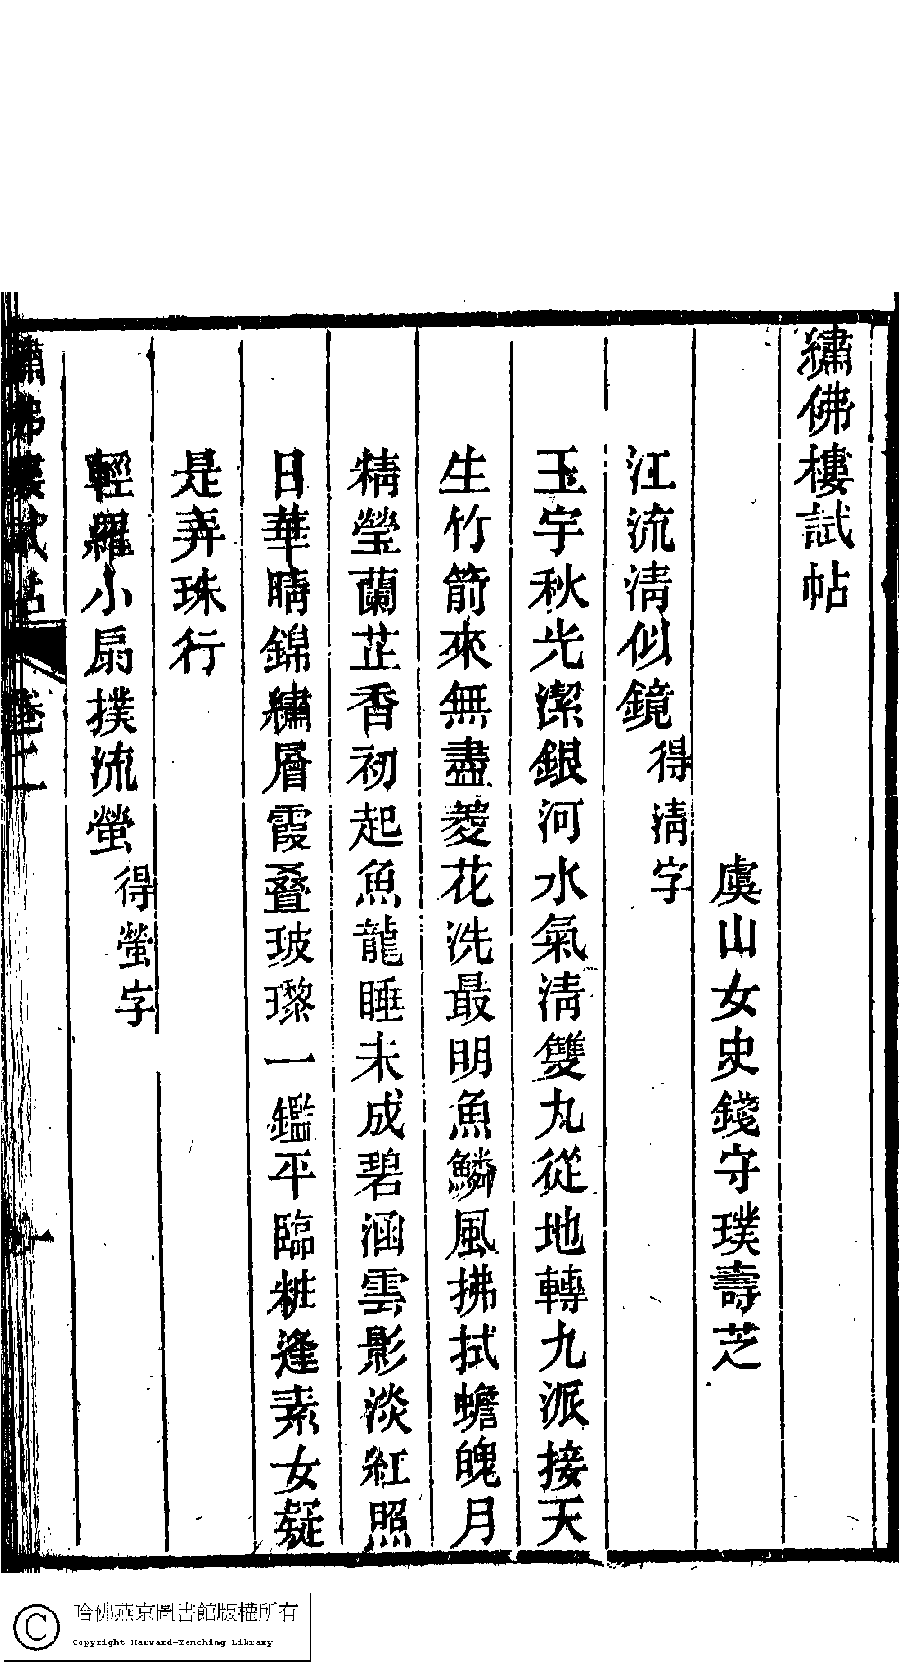 繡佛樓試帖
虞山女史錢守璞壽芝
江流清似鏡得清字
玉宇秋光潔銀河水氣清雙丸從地轉九派接天
生竹箭來無盡菱花洗最明魚鱗風拂拭蟾魄月
精瑩蘭芷香初起魚龍睡未成碧涵雲影淡紅照
日華晴錦繡層霞疊玻瓈一鑑平臨粧逢素女疑
是弄珠行
輕羅小扇撲流螢得螢字
繡佛樓試帖 卷二 一
哈佛燕京圖書館版權所有
Copyright Harvard-Yenching Library